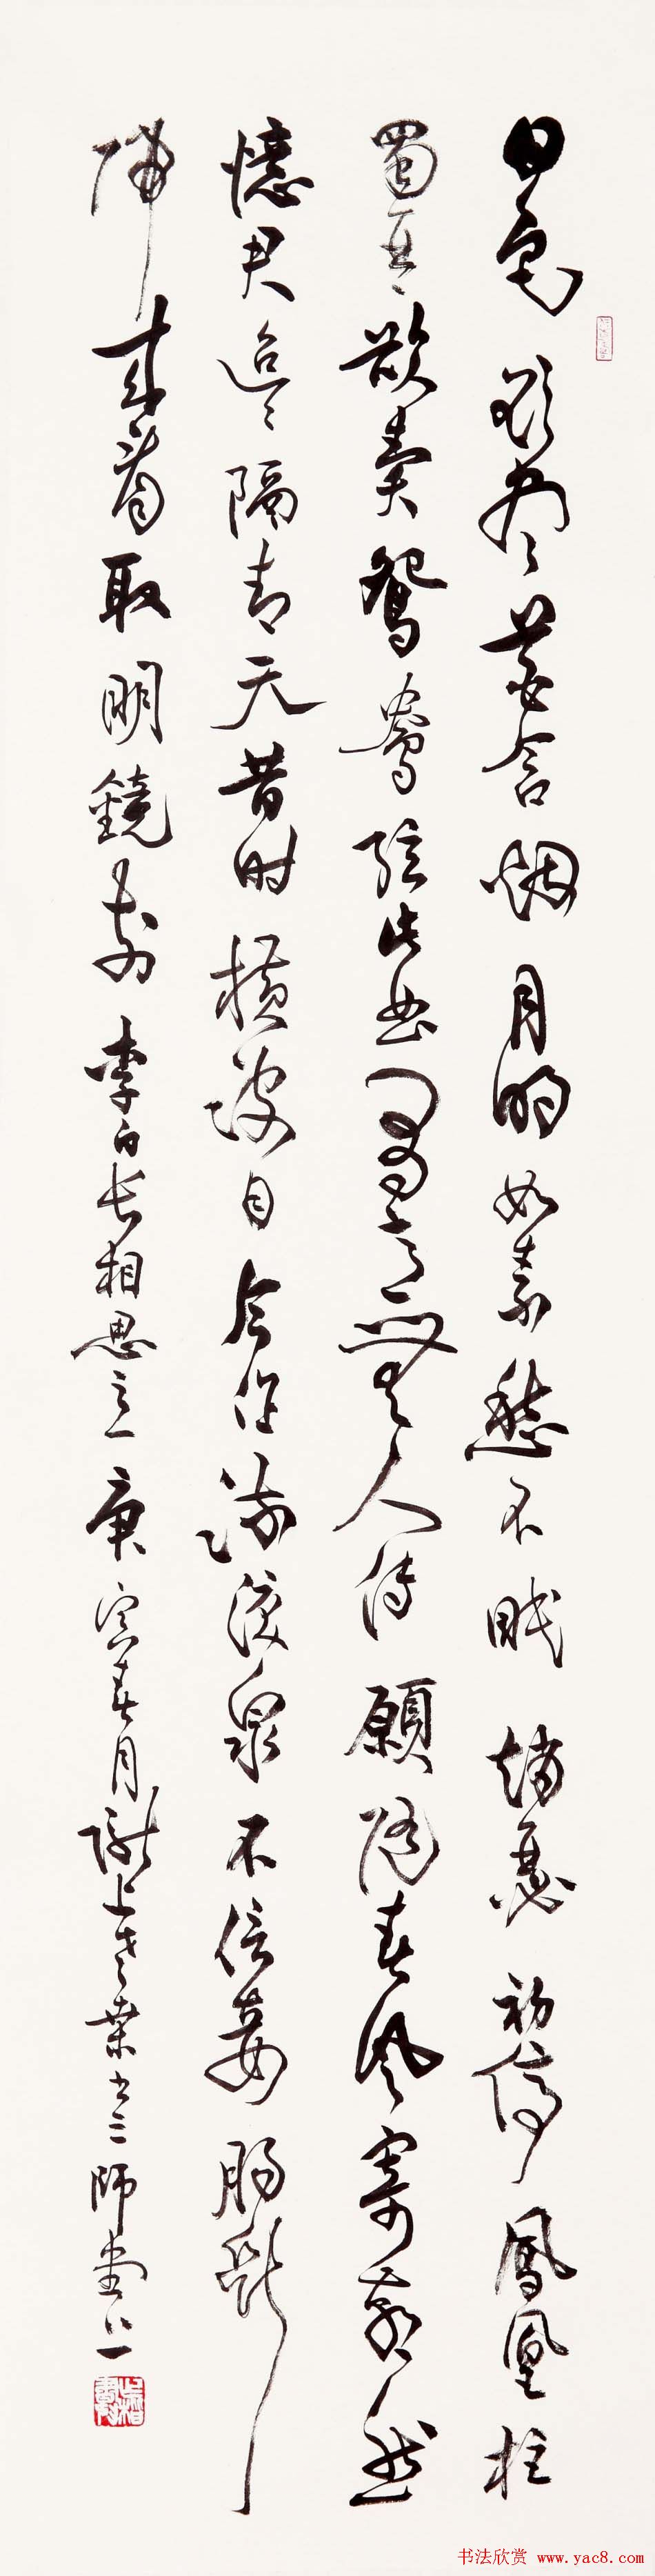 日色欲尽花含烟月明如素愁不眠赵瑟初停凤凰柱
蜀琴欲奏鸳鸯弦此曲有意無人传願随春风寄燕然
憶君迢迢隔青天昔时横波目今作流泪泉不信妾肠断
归来看取明鏡前李白长相思之一庚寅春月陇上老業书三师堂上
书法欣赏 www.yac8.com